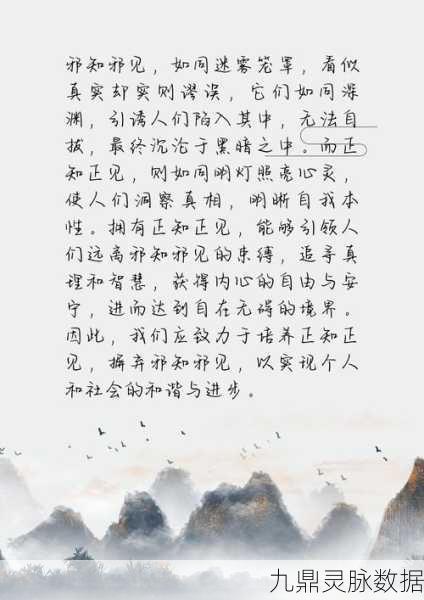 邪知邪见，如同迷雾笼罩，看似
真实却实则谬误，它们如同深
渊，引诱人们陷入其中，无法自
拔，最终沉沦于黑暗之中。而正
知正见，则如同明灯照亮心灵，
使人们洞察真相，明晰自我本
性。拥有正知正见，能够引领人
们远离邪知邪见的束缚，追寻真
理和智慧，获得内心的自由与安
宁，进而达到自在无碍的境界。
因此，我们应致力于培养正知正
见，摒弃邪知邪见，以实现个人
和社会的和谐与进步。
九鼎灵脉数据